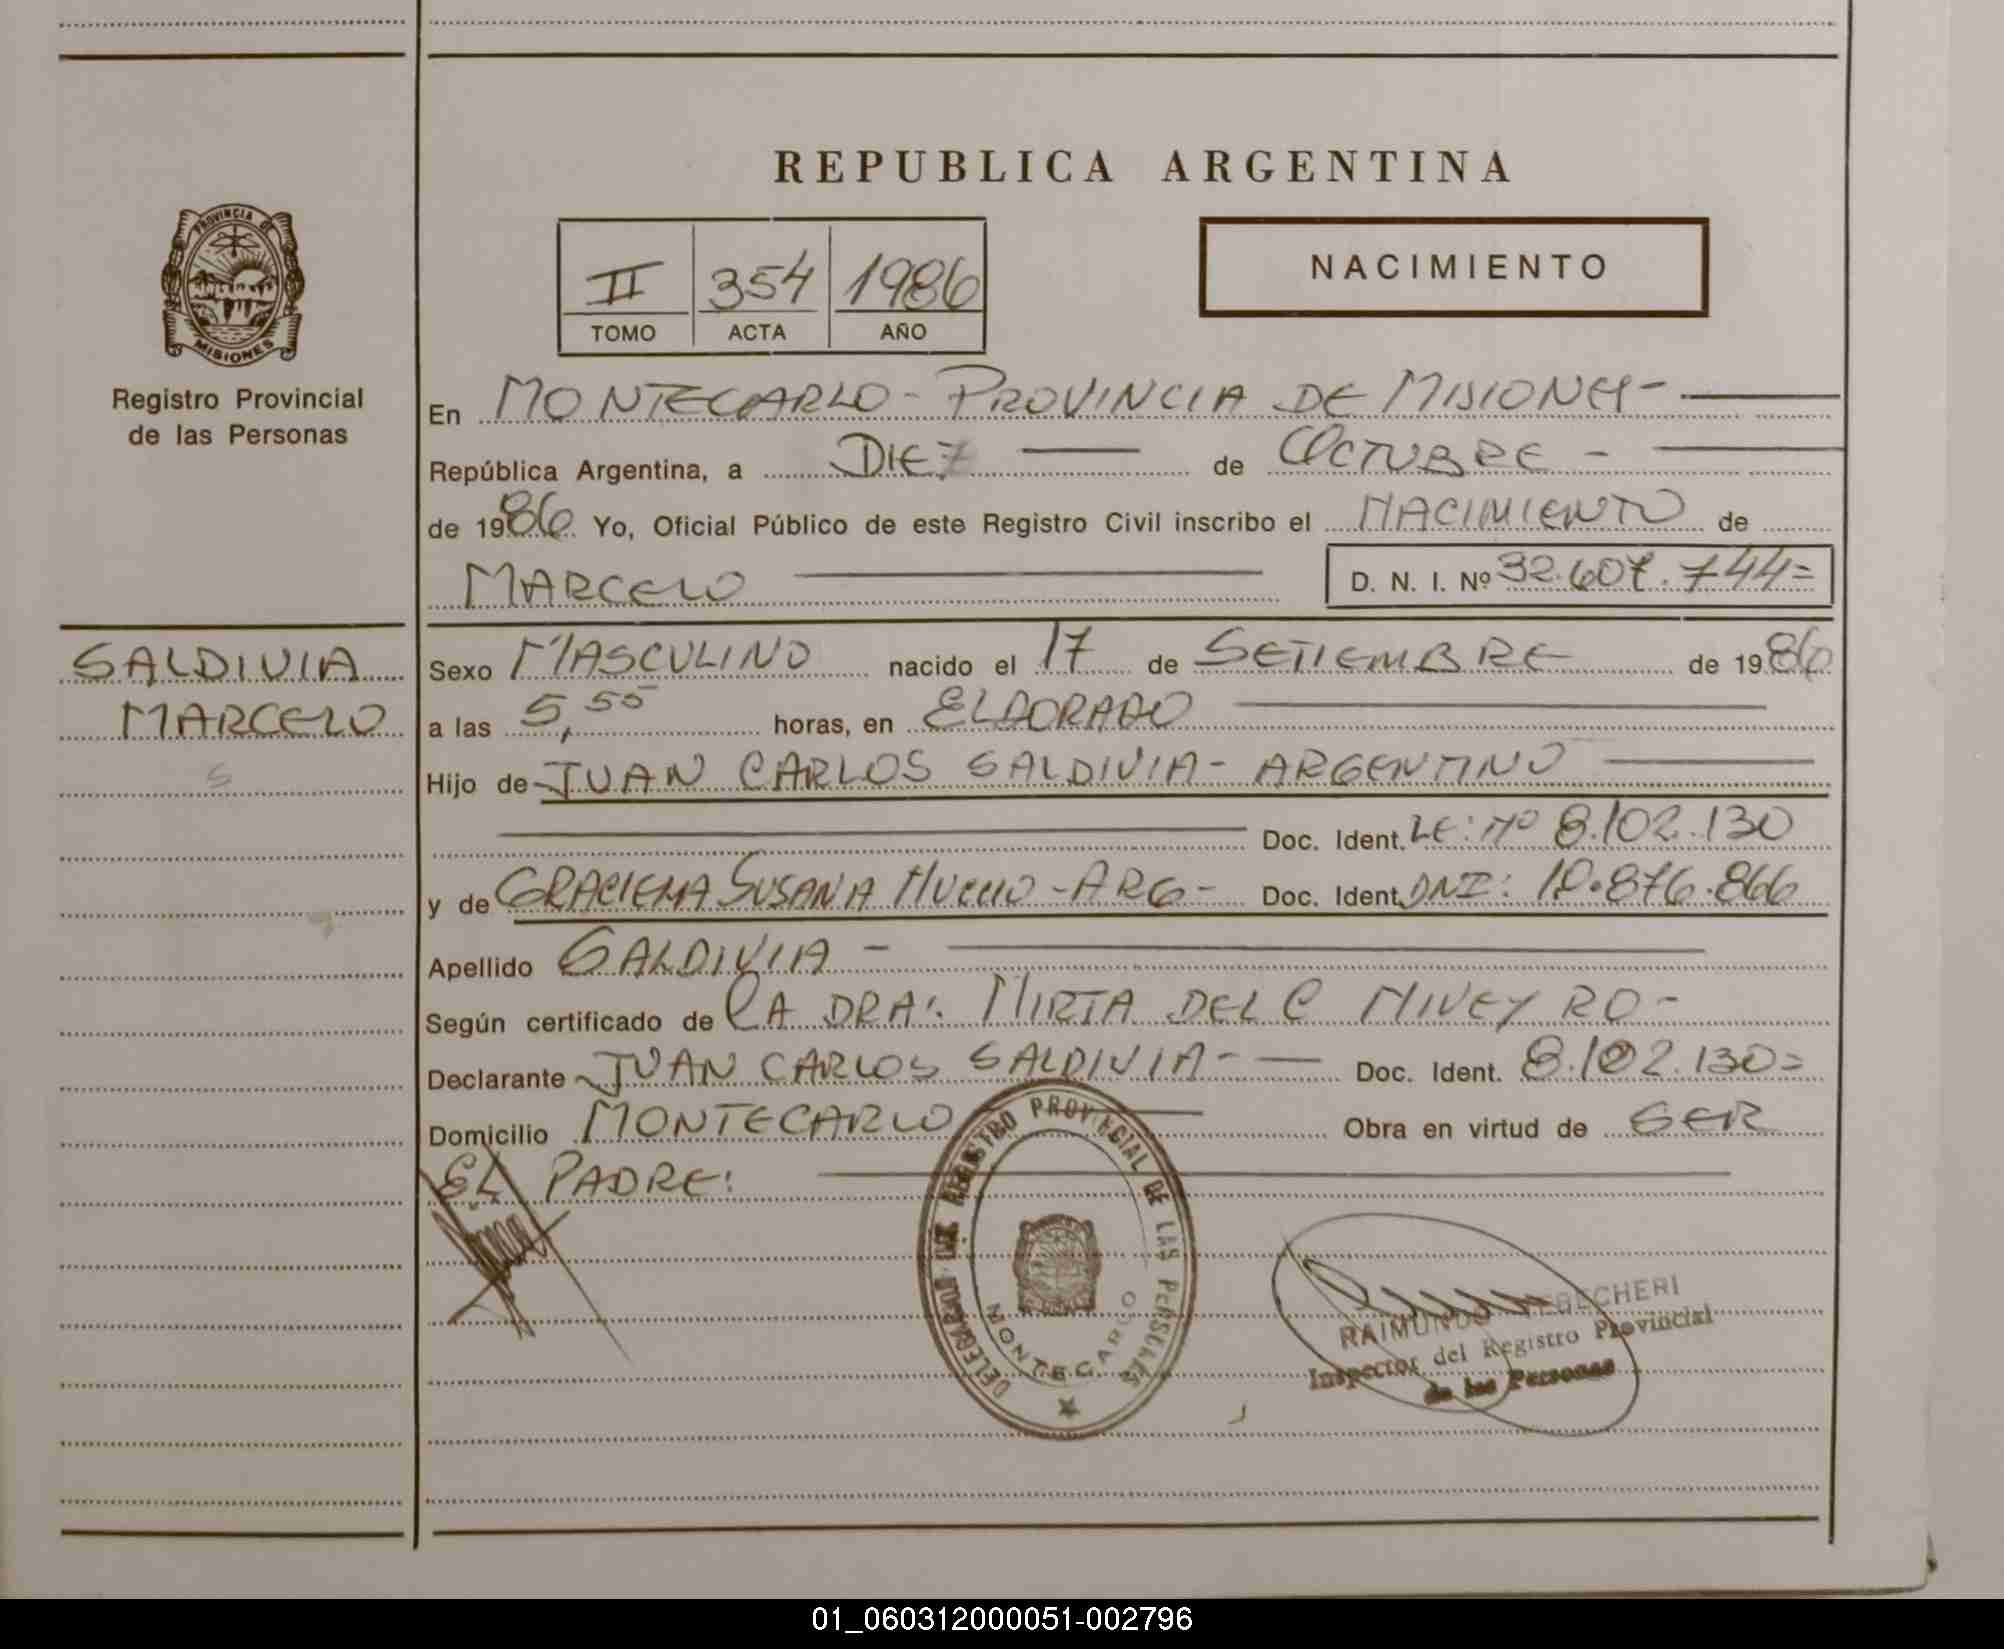 REPUBLICA ARGENTINA
PROVINCIA DE
MISIONES
Registro Provincial
de las Personas
II 354 1986
TOMO ACTA AÑO
NACIMIENTO
En MONTECARLO - PROVINCIA DE MISIONES -
República Argentina, a DIEZ de OCTUBRE -
de 1986 Yo, Oficial Público de este Registro Civil inscribo el NACIMIENTO de
MARCELO D. N. I. Nº 32.607.744=
SALDIVIA
MARCELO
S
Sexo MASCULINO nacido el 17 de SETIEMBRE de 1986
a las 5,55 horas, en ELDORADO
Hijo de JUAN CARLOS SALDIVIA - ARGENTINO
Doc. Ident. LE: Nº 8.102.130
y de SUSANA - ARG - Doc. Ident. DNI: 10.876.866
Apellido SALDIVIA -
Según certificado de LA DRA: MIRTA DEL C
Declarante JUAN CARLOS SALDIVIA - Doc. Ident. 8.102.130=
Domicilio MONTECARLO Obra en virtud de SER
EL PADRE:
REGISTRO PROVINCIAL DE LAS PERSONAS
MONTECARLO
RAIMUNDO
Inspector del Registro Provincial
de las Personas
01_060312000051-002796